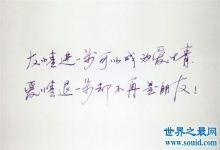 友情进一步可以成为爱情
爱情退一步却不再是朋友！
世界之最网
www.zuijia.com